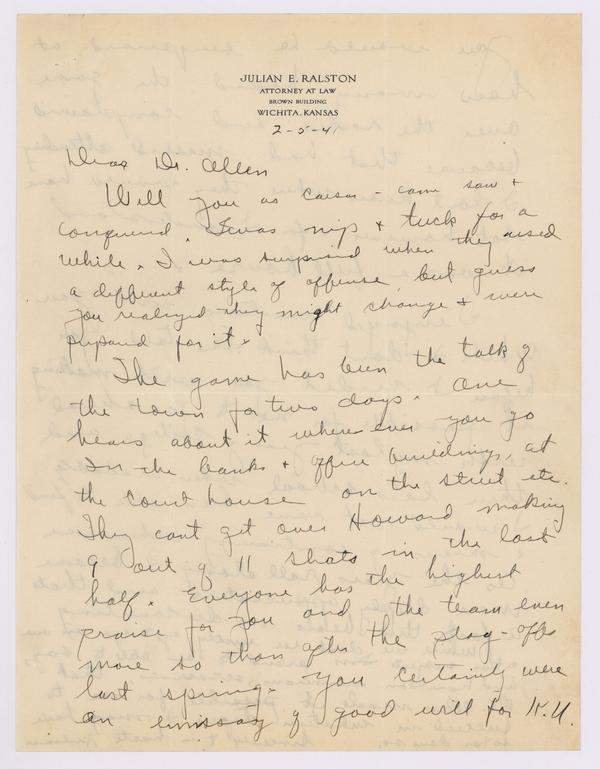 JULIAN E. RALSTON
ATTORNEY AT LAW
BROWN BUILDING
WICHITA, KANSAS
2-5-41
Dear Dr. Allen
Well you as Caesar - came saw +
conquered. It was nip + tuck for a
while. I was surprised when they used
a different style of offense but guess
you realized they might change + were
prepared for it.
The game has been the talk of
the town for two days. One
hears about it where ever you go
In the banks + office buildings, at
the court house on the street etc.
They cant get over Howard making
9 out of 11 shots in the last
half. Everyone has the highest
praise for you and the team even
more so than after the play-offs
last spring. You certainly were
an emissary of good will for K.U.